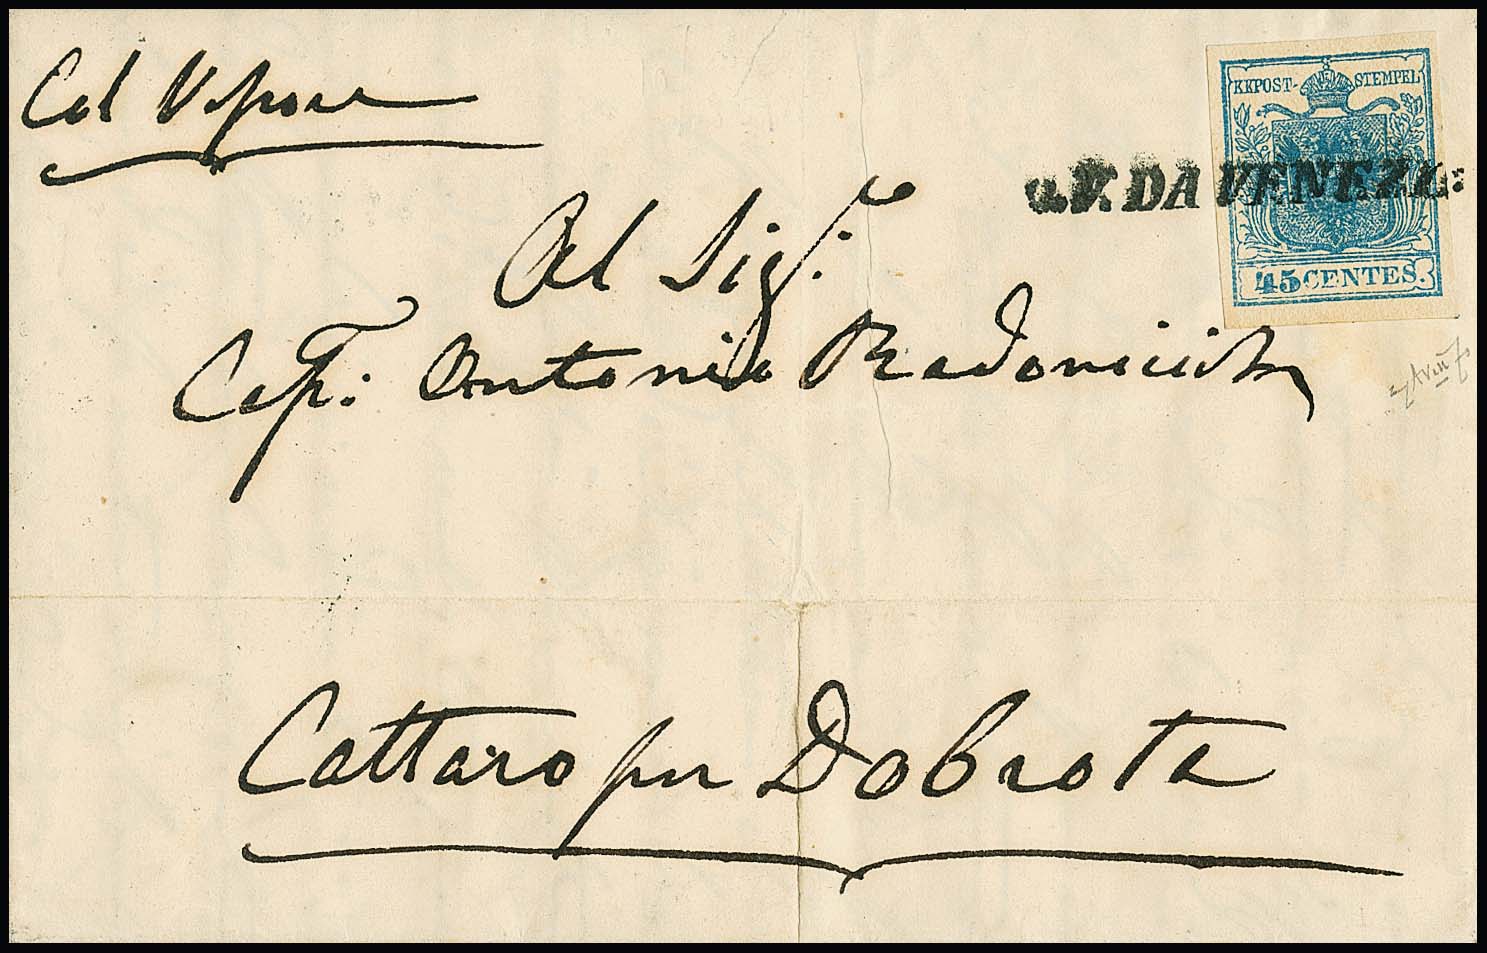 Col Vapore
KKPOST-STEMPEL
DA VENEZ
45 CENTES.
Al Sig.r
Cap.: Antonio Radonicich
Cattaro per Dobrota